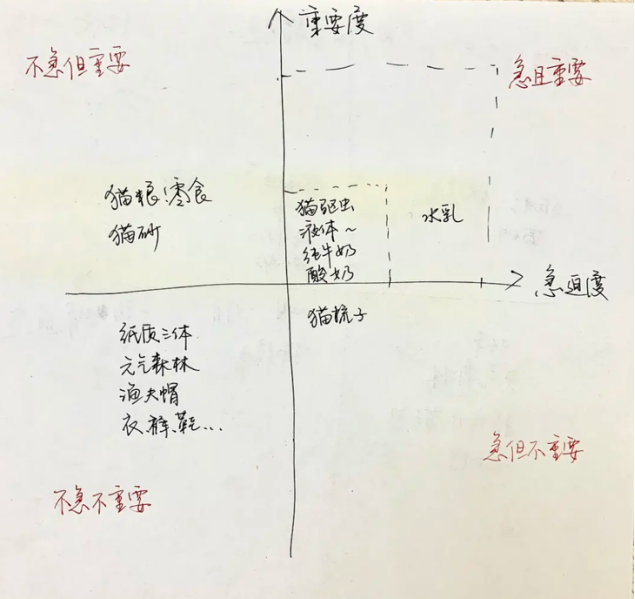 重要度
不急但重要
急且重要
猫粮、零食
猫砂
猫驱虫
液体~
纯牛奶
酸奶
水乳
急迫度
猫梳子
纸质三体
元气森林
渔夫帽
衣、裤、鞋...
急但不重要
不急不重要